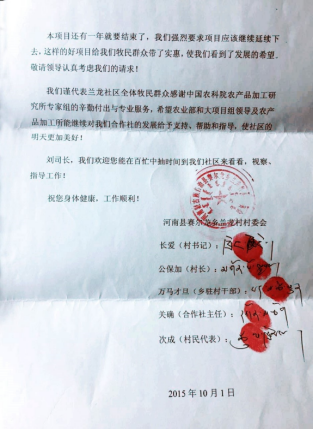 本项目还有一年就要结束了，我们强烈要求项目应该继续延续下
去，这样的好项目给我们牧民群众带了实惠，使我们看到了发展的希望。
敬请领导认真考虑我们的请求！
我们谨代表兰龙社区全体牧民群众感谢中国农科院农产品加工研
究所专家组的辛勤付出与专业服务，希望农业部和大项目组领导及农产
品加工所能继续对我们合作社的发展给予支持、帮助和指导，使社区的
明天更加美好！
刘司长，我们欢迎您能在百忙中抽时间到我们社区来看看，视察、
指导工作！
祝您身体健康，工作顺利！
河南县赛尔龙乡兰龙村村委会
长爱（村书记）：
公保加（村长）：
万马才旦（乡驻村干部）：
关确（合作社主任）：
次成（村民代表）：
2015 年 10 月 1 日